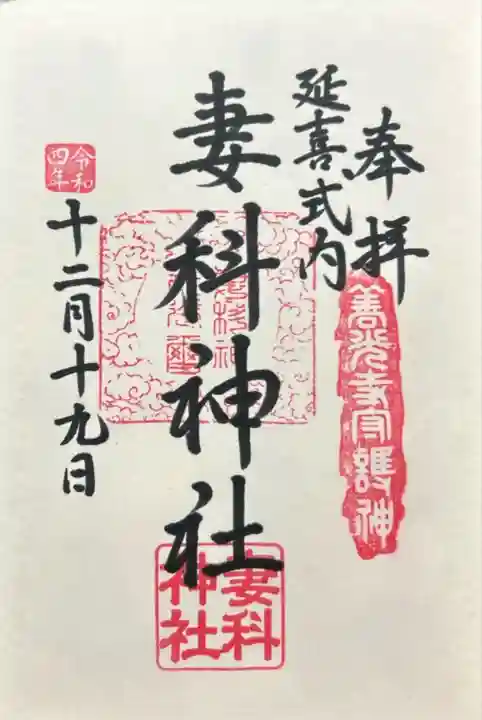 奉拝
善光寺守護神
延喜式内
妻科神社
妻科
神社
令和
四年
十二月十九日